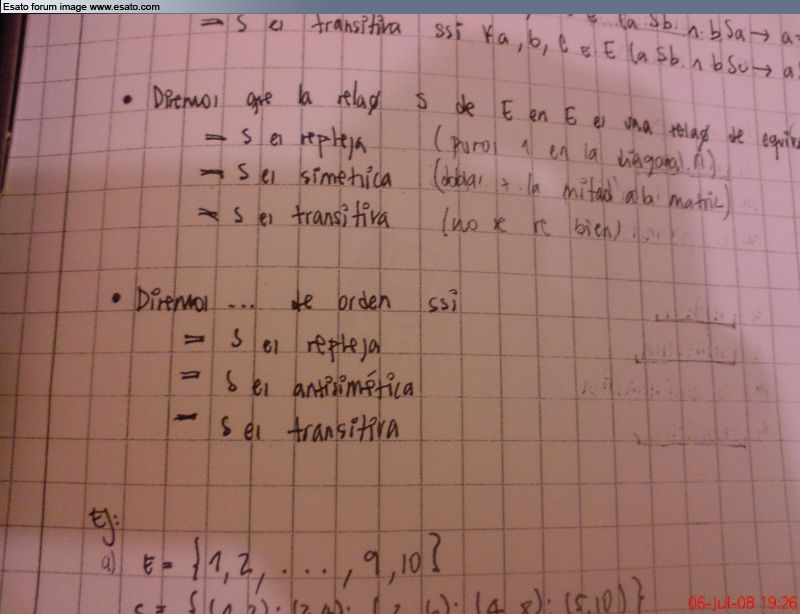 Esato forum image www.esato.com
a Sb ∧ bSa → a
= S es transitiva ssi ∀a, b, c ∈ E (a Sb ∧ bSc → a
• Diremos que la relaç S de E en E es una relaç de equiv
= S es refleja (puros 1 en la diagonal)
= S es simetrica (doblar + la mitad a la matriz)
= S es transitiva (no se ve bien)
• Diremos ... de orden ssi
= S es refleja
= S es antisimétrica
- S es transitiva
Ej:
a) E = {1, 2, ..., 9, 10}
06-Jul-08 19:26